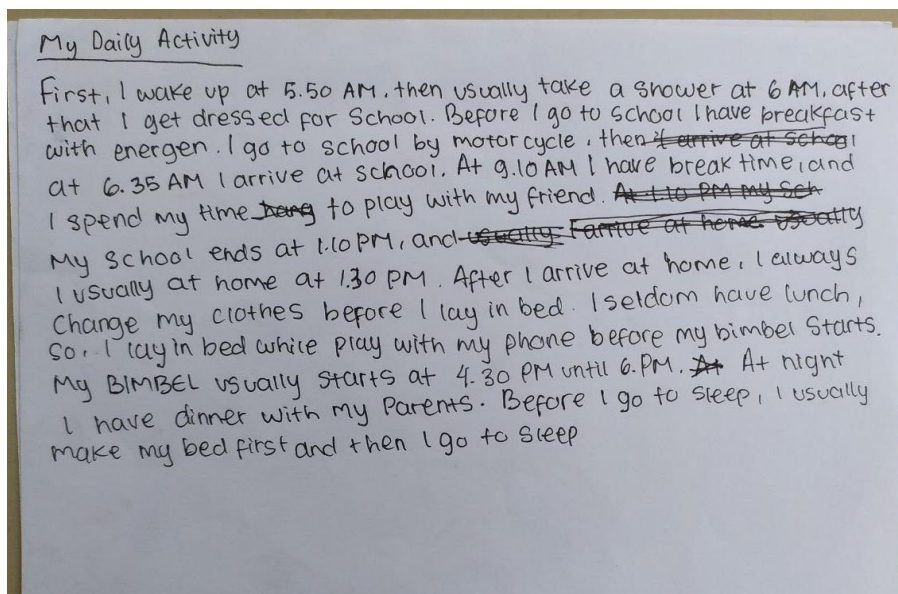 My Daily Activity
First, I wake up at 5.50 AM, then usually take a shower at 6 AM, after
that I get dressed for School. Before I go to school I have breakfast
with energen. I go to school by motorcycle, then I arrive at school
at 6.35 AM I arrive at school. At 9.10 AM I have break time, and
I spend my time hang to play with my friend. At 1.10 PM my Sch
My School ends at 1.10 PM, and usually I arrive at home usually
I usually at home at 1.30 PM. After I arrive at home, I always
Change my clothes before I lay in bed. I seldom have lunch,
So, I lay in bed while play with my phone before my bimbel Starts.
My BIMBEL usually Starts at 4.30 PM until 6.PM. At At night
I have dinner with my Parents. Before I go to sleep, I usually
make my bed first and then I go to sleep